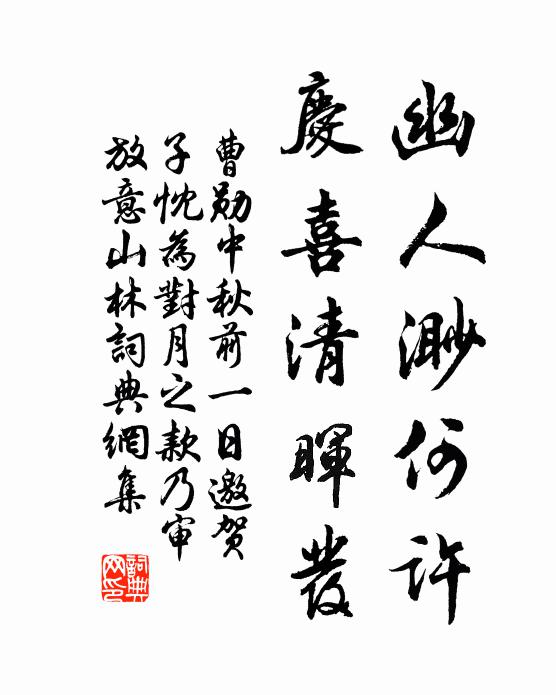 幽人渺何許
慶喜清暉發
曹勋中秋前一日邀贺
子忱為對月之款乃审
放意山林詞典網集
詞典
网印